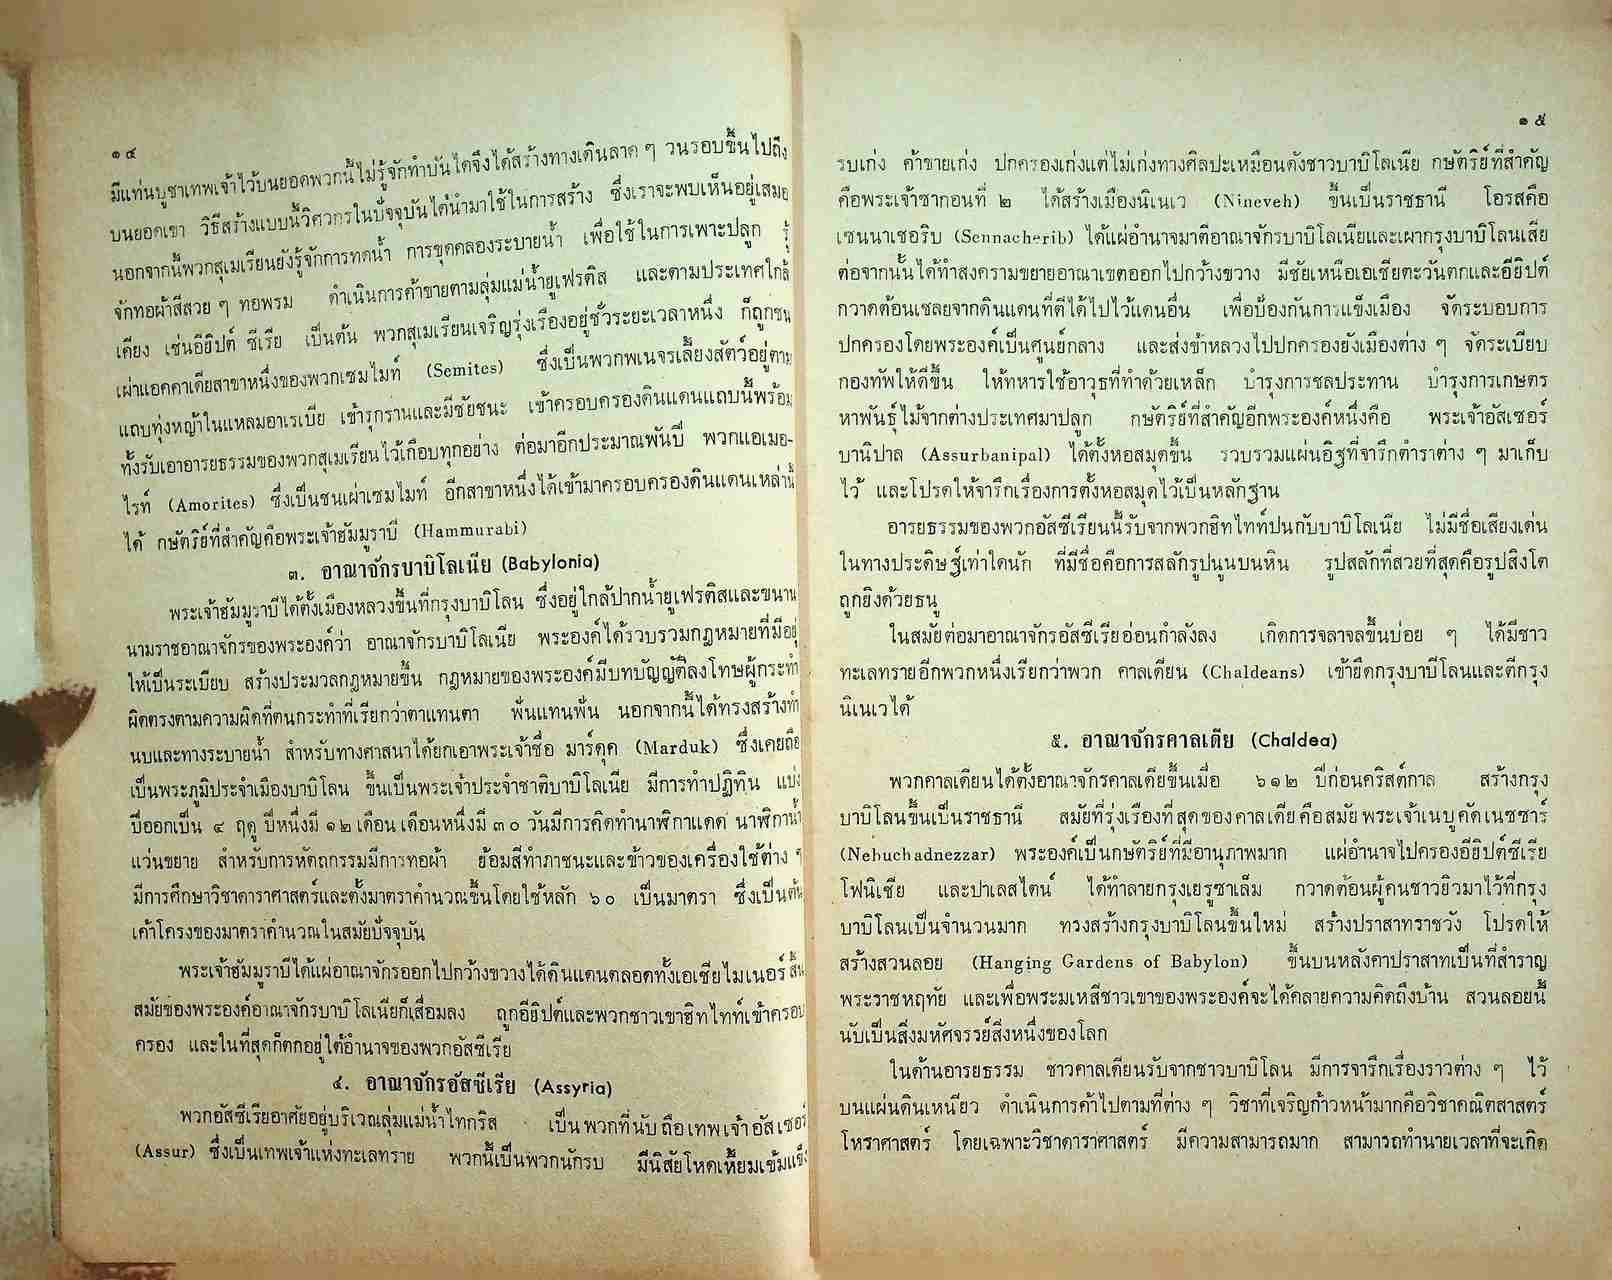 ๑๔
มีแท่นบูชาเทพเจ้าไว้บนยอดพวกนี้ไม่รู้จักทำบันไดจึงได้สร้างทางเดินลาด ๆ วนรอบขึ้นไปถึง
บนยอดเขา วิธีสร้างแบบนี้วิศวกรในปัจจุบันได้นำมาใช้ในการสร้าง ซึ่งเราจะพบเห็นอยู่เสมอ
นอกจากนี้พวกสุเมเรียนยังรู้จักการทดน้ำ การขุดคลองระบายน้ำ เพื่อใช้ในการเพาะปลูก รู้
จักทอผ้าสีสวย ๆ ทอพรม ดำเนินการค้าขายตามลุ่มแม่น้ำยูเฟรติส และตามประเทศใกล้
เคียง เช่นอียิปต์ ซีเรีย เป็นต้น พวกสุเมเรียนเจริญรุ่งเรืองอยู่ชั่วระยะเวลาหนึ่ง ก็ถูกชน
เผ่าแอคคาเดียสาขาหนึ่งของพวกเซมไมท์ (Semites) ซึ่งเป็นพวกพเนจรเลี้ยงสัตว์อยู่ตาม
แถบทุ่งหญ้าในแหลมอาเรเบีย เข้ารุกรานและมีชัยชนะ เข้าครอบครองดินแดนแถบนี้พร้อม
ทั้งรับเอาอารยธรรมของพวกสุเมเรียนไว้เกือบทุกอย่าง ต่อมาอีกประมาณพันปี พวกแอเมอ-
ไรท์ (Amorites) ซึ่งเป็นชนเผ่าเซมไมท์ อีกสาขาหนึ่งได้เข้ามาครอบครองดินแดนเหล่านี้
ได้ กษัตริย์ที่สำคัญคือพระเจ้าฮัมมูราบี (Hammurabi)
๓. อาณาจักรบาบิโลเนีย (Babylonia)
พระเจ้าฮัมมูราบีได้ตั้งเมืองหลวงขึ้นที่กรุงบาบิโลน ซึ่งอยู่ใกล้ปากน้ำยูเฟรติสและขนาน
นามราชอาณาจักรของพระองค์ว่า อาณาจักรบาบิโลเนีย พระองค์ได้รวบรวมกฎหมายที่มีอยู่
ให้เป็นระเบียบ สร้างประมวลกฎหมายขึ้น กฎหมายของพระองค์มีบทบัญญัติลงโทษผู้กระทำ
ผิดตรงตามความผิดที่ตนกระทำที่เรียกว่าตาแทนตา ฟันแทนฟัน นอกจากนี้ได้ทรงสร้างทำ
นบและทางระบายน้ำ สำหรับทางศาสนาได้ยกเอาพระเจ้าชื่อ มาร์ดุค (Marduk) ซึ่งเคยถือ
เป็นพระภูมิประจำเมืองบาบิโลน ขึ้นเป็นพระเจ้าประจำชาติบาบิโลเนีย มีการทำปฏิทิน แบ่ง
ปีออกเป็น ๔ ฤดู ปีหนึ่งมี ๑๒ เดือน เดือนหนึ่งมี ๓๐ วันมีการคิดทำนาฬิกาแดด นาฬิกาน้ำ
แว่นขยาย สำหรับการหัตถกรรมมีการทอผ้า ย้อมสีทำภาชนะและข้าวของเครื่องใช้ต่าง ๆ
มีการศึกษาวิชาดาราศาสตร์และตั้งมาตราคำนวณขึ้นโดยใช้หลัก ๖๐ เป็นมาตรา ซึ่งเป็นต้น
เค้าโครงของมาตราคำนวณในสมัยปัจจุบัน
พระเจ้าฮัมมูราบีได้แผ่อาณาจักรออกไปกว้างขวางได้ดินแดนตลอดทั้งเอเชียไมเนอร์ สิ้น
สมัยของพระองค์อาณาจักรบาบิโลเนียก็เสื่อมลง ถูกอียิปต์และพวกชาวเขาฮิทไทท์เข้าครอบ
ครอง และในที่สุดก็ตกอยู่ใต้อำนาจของพวกอัสซีเรีย
๔. อาณาจักรอัสซีเรีย (Assyria)
พวกอัสซีเรียอาศัยอยู่บริเวณลุ่มแม่น้ำไทกริส เป็นพวกที่นับถือเทพเจ้าอัสเซอร์
(Assur) ซึ่งเป็นเทพเจ้าแห่งทะเลทราย พวกนี้เป็นพวกนักรบ มีนิสัยโหดเหี้ยมเข้มแข็ง
๑๕
รบเก่ง ค้าขายเก่ง ปกครองเก่งแต่ไม่เก่งทางศิลปะเหมือนดังชาวบาบิโลเนีย กษัตริย์ที่สำคัญ
คือพระเจ้าซากอนที่ ๒ ได้สร้างเมืองนิเนเว (Nineveh) ขึ้นเป็นราชธานี โอรสคือ
เซนนาเชอริบ (Sennacherib) ได้แผ่อำนาจมาตีอาณาจักรบาบิโลเนียและเผากรุงบาบิโลนเสีย
ต่อจากนั้นได้ทำสงครามขยายอาณาเขตออกไปกว้างขวาง มีชัยเหนือเอเชียตะวันตกและอียิปต์
กวาดต้อนเชลยจากดินแดนที่ตีได้ไปไว้แดนอื่น เพื่อป้องกันการแข็งเมือง จัดระบอบการ
ปกครองโดยพระองค์เป็นศูนย์กลาง และส่งข้าหลวงไปปกครองยังเมืองต่าง ๆ จัดระเบียบ
กองทัพให้ดีขึ้น ให้ทหารใช้อาวุธที่ทำด้วยเหล็ก บำรุงการชลประทาน บำรุงการเกษตร
หาพันธุ์ไม้จากต่างประเทศมาปลูก กษัตริย์ที่สำคัญอีกพระองค์หนึ่งคือ พระเจ้าอัสเซอร์
บานิปาล (Assurbanipal) ได้ตั้งหอสมุดขึ้น รวบรวมแผ่นอิฐที่จารึกตำราต่าง ๆ มาเก็บ
ไว้ และโปรดให้จารึกเรื่องการตั้งหอสมุดไว้เป็นหลักฐาน
อารยธรรมของพวกอัสซีเรียนนี้รับจากพวกฮิทไทท์ปนกับบาบิโลเนีย ไม่มีชื่อเสียงเด่น
ในทางประดิษฐ์เท่าใดนัก ที่มีชื่อคือการสลักรูปนูนบนหิน รูปสลักที่สวยที่สุดคือรูปสิงโต
ถูกยิงด้วยธนู
ในสมัยต่อมาอาณาจักรอัสซีเรียอ่อนกำลังลง เกิดการจลาจลขึ้นบ่อย ๆ ได้มีชาว
ทะเลทรายอีกพวกหนึ่งเรียกว่าพวก คาลเดียน (Chaldeans) เข้ายึดกรุงบาบีโลนและตีกรุง
นิเนเวได้
๕. อาณาจักรคาลเดีย (Chaldea)
พวกคาลเดียนได้ตั้งอาณาจักรคาลเดียขึ้นเมื่อ ๖๑๒ ปีก่อนคริสต์กาล สร้างกรุง
บาบิโลนขึ้นเป็นราชธานี สมัยที่รุ่งเรืองที่สุดของคาลเดียคือสมัยพระเจ้าเนบูคัดเนซซาร์
(Nebuchadnezzar) พระองค์เป็นกษัตริย์ที่มีอานุภาพมาก แผ่อำนาจไปครองอียิปต์ซีเรีย
โฟนิเชีย และปาเลสไตน์ ได้ทำลายกรุงเยรูซาเล็ม กวาดต้อนผู้คนชาวยิวมาไว้ที่กรุง
บาบิโลนเป็นจำนวนมาก ทรงสร้างกรุงบาบิโลนขึ้นใหม่ สร้างปราสาทราชวัง โปรดให้
สร้างสวนลอย (Hanging Gardens of Babylon) ขึ้นบนหลังคาปราสาทเป็นที่สำราญ
พระราชหฤทัย และเพื่อพระมเหสีชาวเขาของพระองค์จะได้คลายความคิดถึงบ้าน สวนลอยนี้
นับเป็นสิ่งมหัศจรรย์สิ่งหนึ่งของโลก
ในด้านอารยธรรม ชาวคาลเดียนรับจากชาวบาบิโลน มีการจารึกเรื่องราวต่าง ๆ ไว้
บนแผ่นดินเหนียว ดำเนินการค้าไปตามที่ต่าง ๆ วิชาที่เจริญก้าวหน้ามากคือวิชาคณิตสาสตร์
โหราศาสตร์ โดยเฉพาะวิชาดาราศาสตร์ มีความสามารถมาก สามารถทำนายเวลาที่จะเกิด